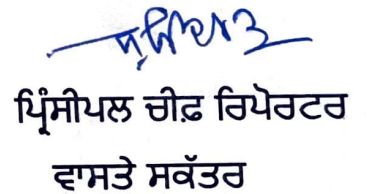 ਪ੍ਰਿੰਸੀਪਲ ਚੀਫ਼ ਰਿਪੋਰਟਰ
ਵਾਸਤੇ ਸਕੱਤਰ